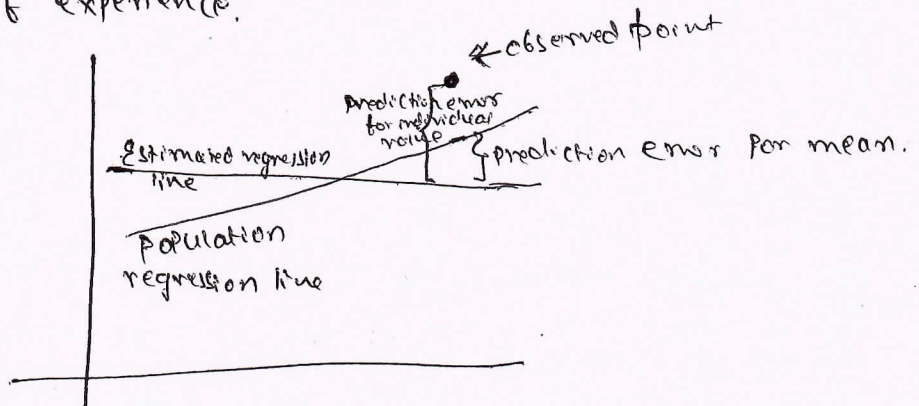 of experience.
observed point
prediction error
for individual
value
Estimated regression
line
prediction error for mean.
population
regression line